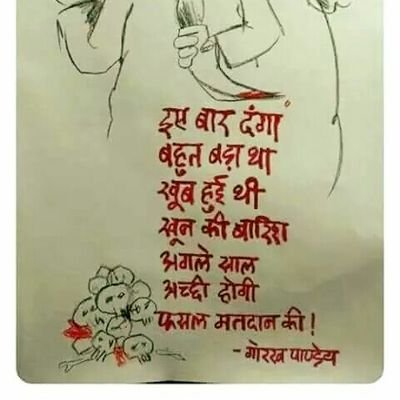 इस बार दंगा
बहुत बड़ा था
खूब हुई थी
खून की बारिश
अगले साल
अच्छी होगी
फसल मतदान की!
- गोरख पाण्डेय